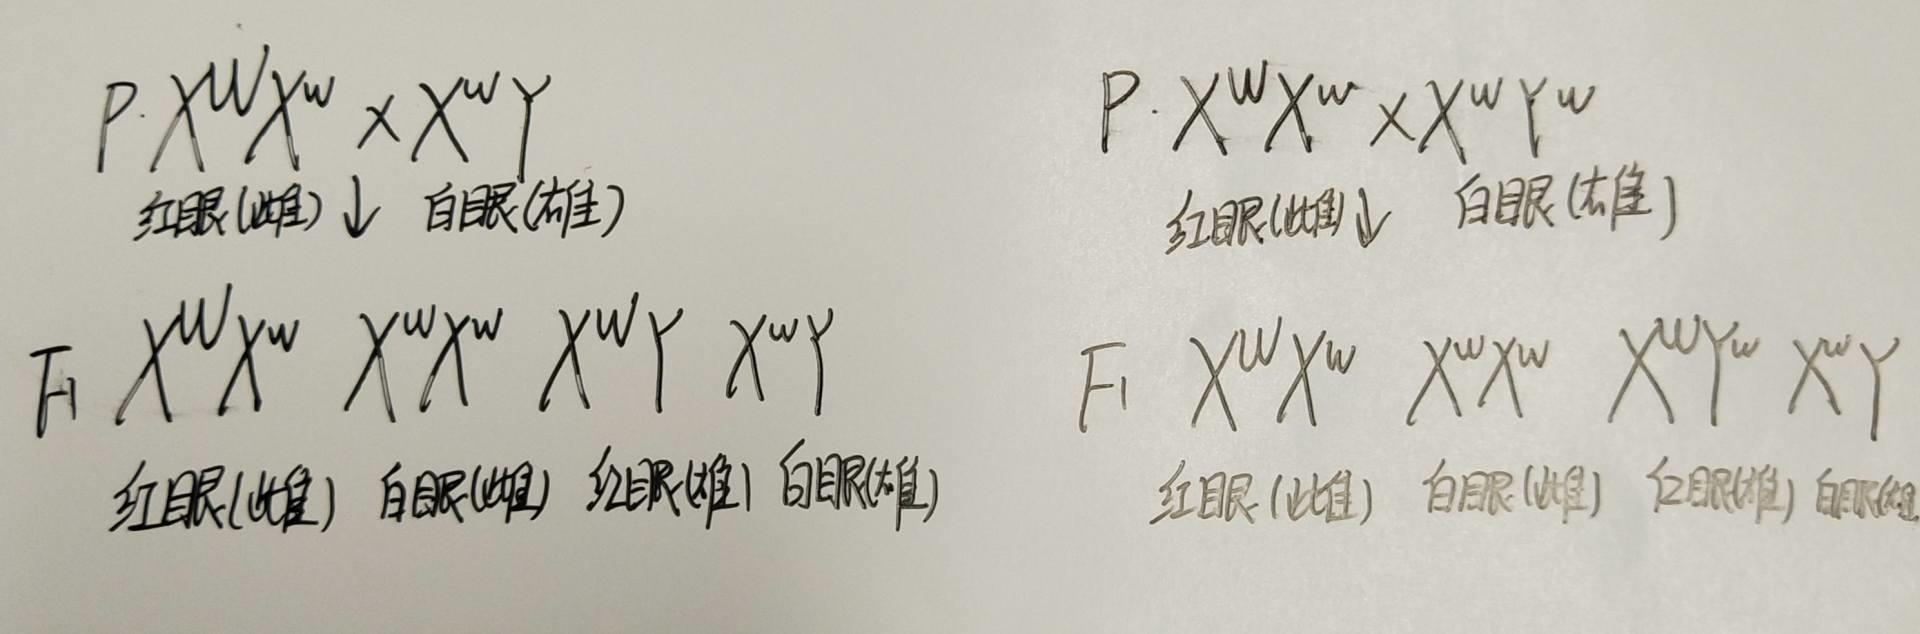 P. XᵂXʷ × XʷY
红眼(雌) ↓ 白眼(雄)
F₁ XᵂXʷ XʷXʷ XᵂY XʷY
红眼(雌) 白眼(雌) 红眼(雄) 白眼(雄)
P. XᵂXʷ × XʷYʷ
红眼(雌) ↓ 白眼(雄)
F₁ XᵂXʷ XʷXʷ XᵂYʷ XʷY
红眼(雌) 白眼(雌) 红眼(雄) 白眼(雄